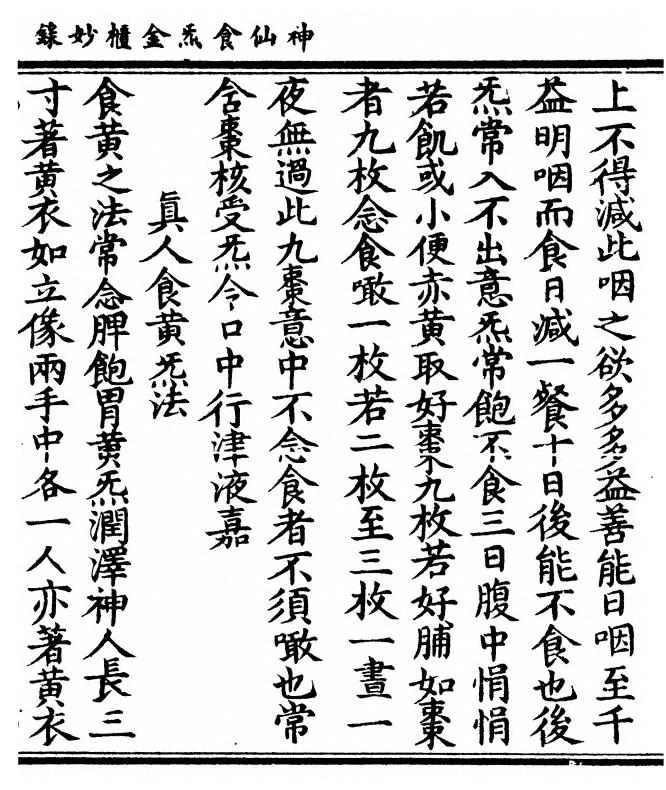 神仙食炁金櫃妙錄
上不得減此咽之欲多多益善能日咽至千
益明咽而食日減一餐十日後能不食也後
炁常入不出意炁常飽不食三日腹中悁悁
若飢或小便赤黃取好棗九枚若好脯如棗
者九枚念食噉一枚若二枚至三枚一晝一
夜無過此九棗意中不念食者不須噉也常
含棗核受炁令口中行津液嘉
眞人食黃炁法
食黃之法常念脾飽胃黃炁潤澤神人長三
寸著黃衣如立像兩手中各一人亦著黃衣